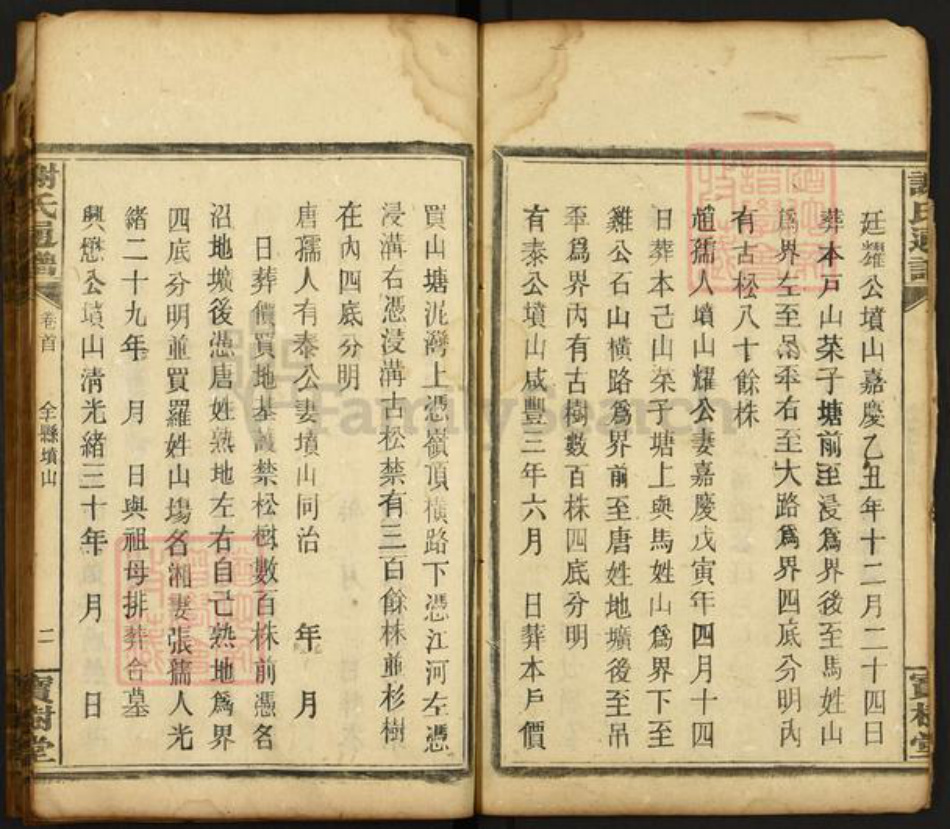 廷耀公墳山嘉慶乙丑年十二月二十四日
葬本戸山菜子塘前至浸爲界後至馬姓山
爲界左至吊㔻右至大路爲界四底分明內
有古松八十餘株
趙孺人墳山耀公妻嘉慶戊寅年四月十四
日葬本己山菜子塘上與馬姓山爲界下至
雞公石山橫路爲界前至唐姓地壙後至吊
㔻爲界內有古樹數百株四底分明
有泰公墳山咸豐三年六月 日葬本戸價
買山塘泥灣上憑嶺頂橫路下憑江河左憑
浸溝右憑浸溝古松禁有三百餘株並杉樹
在內四底分明
唐孺人有泰公妻墳山同治 年 月
日葬價買地基蓄禁松樹數百株前憑名
沼地壙後憑唐姓熟地左右自己熟地爲界
四底分明並買羅姓山塲名湘妻張孺人光
緒二十九年 月 日與祖母排葬合墓
興懋公墳山清光緒三十年 月 日
謝氏通譜
卷首
全縣墳山
二
寶樹堂
FamilySearch